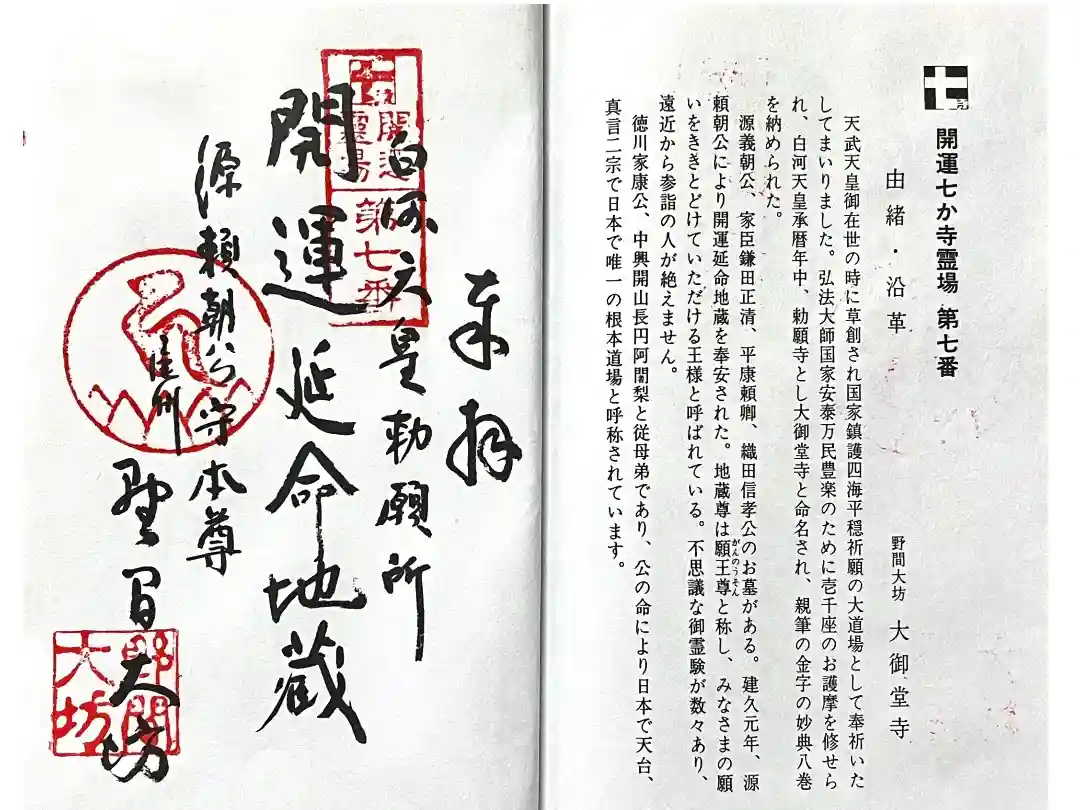 開運七か寺霊場 第七番
由緒・沿革
野間大坊 大御堂寺
天武天皇御在世の時に草創され国家鎮護四海平穏祈願の大道場として奉祈いた
してまいりました。弘法大師国家安泰万民豊楽のために壱千座のお護摩を修せら
れ、白河天皇承暦年中、勅願寺とし大御堂寺と命名され、親筆の金字の妙典八巻
を納められた。
源義朝公、家臣鎌田正清、平康頼卿、織田信孝公のお墓がある。建久元年、源
頼朝公により開運延命地蔵を奉安された。地蔵尊は願王尊と称し、みなさまの願
がんのうそん
いをききとどけていただける王様と呼ばれている。不思議な御霊験が数々あり、
遠近から参詣の人が絶えません。
徳川家康公、中興開山長円阿闍梨と従母弟であり、公の命により日本で天台、
真言二宗で日本で唯一の根本道場と呼称されています。
奉拝
白河天皇勅願所
開運延命地蔵
源頼朝公守本尊
尾州
野間大坊
開運
霊場
第七番
野間
大坊